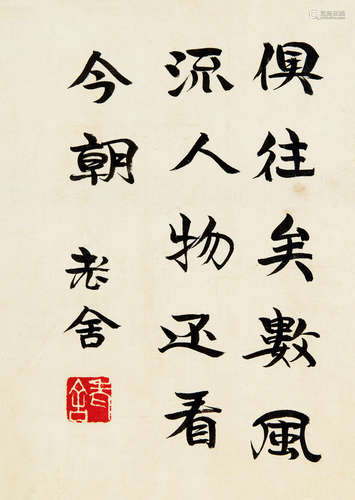 俱往矣數風
流人物还看
今朝
老舍
老舍